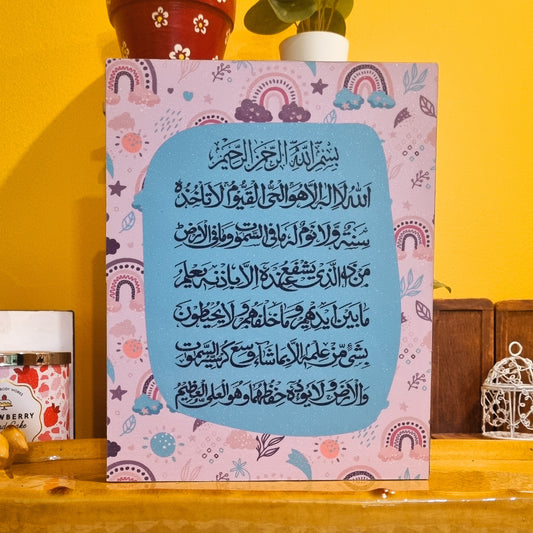 بسم الله الرحمن الرحيم
الله لا إله إلا هو الحي القيوم لا تأخذه
سنة ولا نوم له ما في السموت وما في الأرض
من ذا الذي يشفع عنده إلا بإذنه يعلم
ما بين أيديهم وما خلفهم ولا يحيطون
بشيء من علمه إلا بما شاء وسع كرسيه السموت
والأرض ولا يؤده حفظهما وهو العلي العظيم